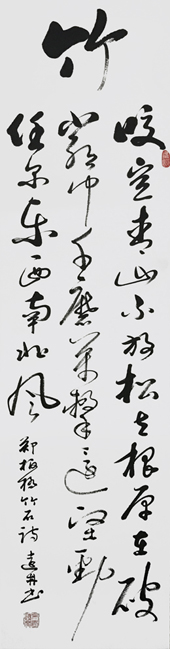 竹
咬定青山不放松立根原在破
岩中千磨萬擊还坚劲
任尔东西南北风
郑板桥竹石诗 书